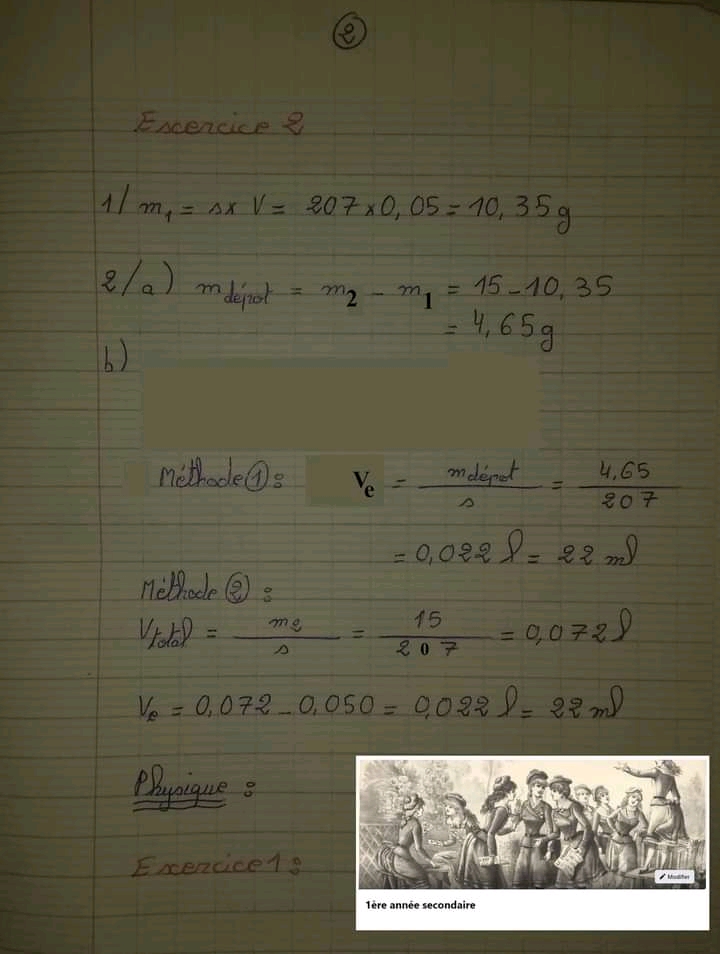 2
Excercice 2
1/ m₁ = s x V = 207 x 0,05 = 10,35g
2/a) m dépot = m₂ - m₁ = 15 - 10,35
= 4,65g
b)
Méthode ① : Vₑ = m dépot / s = 4,65 / 207
= 0,022 l = 22 ml
Méthode ② :
V total = m₂ / s = 15 / 207 = 0,072 l
Vₑ = 0,072 - 0,050 = 0,022 l = 22 ml
Physique :
Exercice 1 :
Modifier
1ère année secondaire